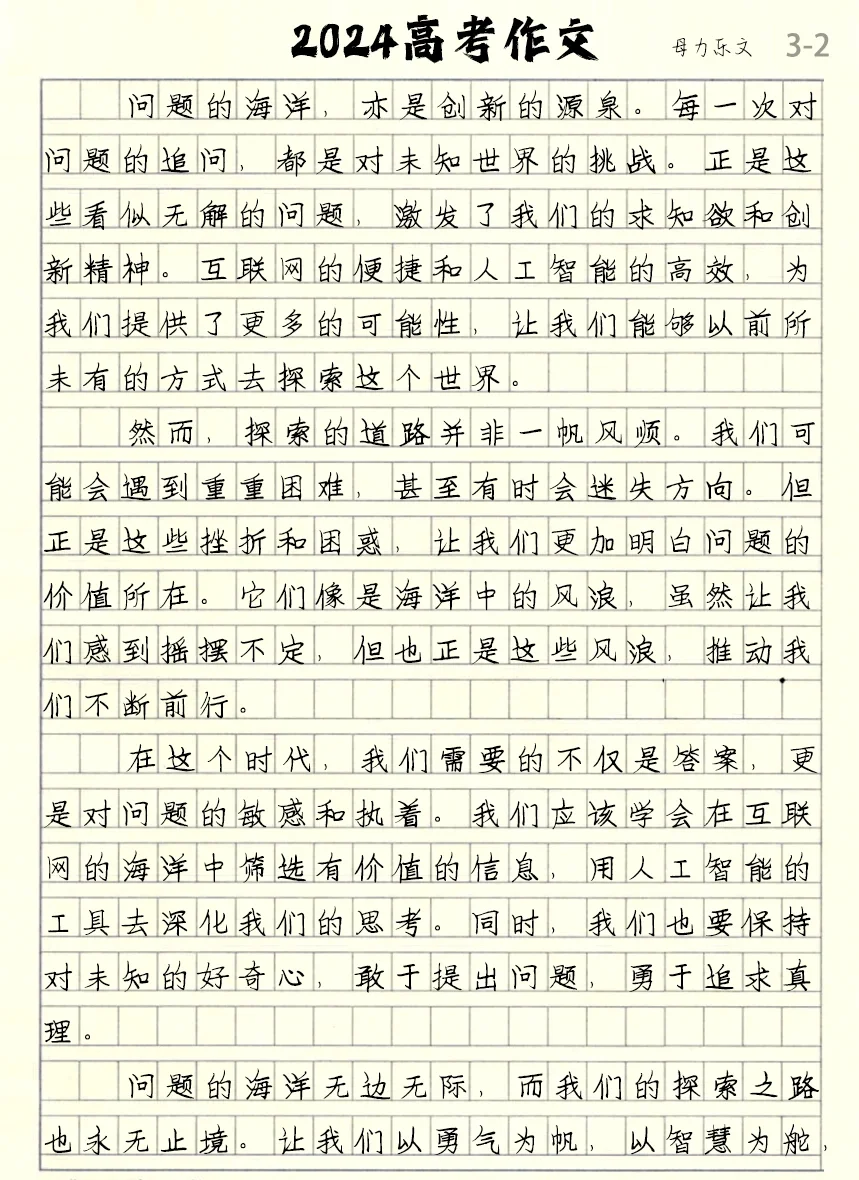 2024高考作文
母力乐文 3-2
问题的海洋，亦是创新的源泉。每一次对
问题的追问，都是对未知世界的挑战。正是这
些看似无解的问题，激发了我们的求知欲和创
新精神。互联网的便捷和人工智能的高效，为
我们提供了更多的可能性，让我们能够以前所
未有的方式去探索这个世界。
然而，探索的道路并非一帆风顺。我们可
能会遇到重重困难，甚至有时会迷失方向。但
正是这些挫折和困惑，让我们更加明白问题的
价值所在。它们像是海洋中的风浪，虽然让我
们感到摇摆不定，但也正是这些风浪，推动我
们不断前行。
在这个时代，我们需要的不仅是答案，更
是对问题的敏感和执着。我们应该学会在互联
网的海洋中筛选有价值的信息，用人工智能的
工具去深化我们的思考。同时，我们也要保持
对未知的好奇心，敢于提出问题，勇于追求真
理。
问题的海洋无边无际，而我们的探索之路
也永无止境。让我们以勇气为帆，以智慧为舵，